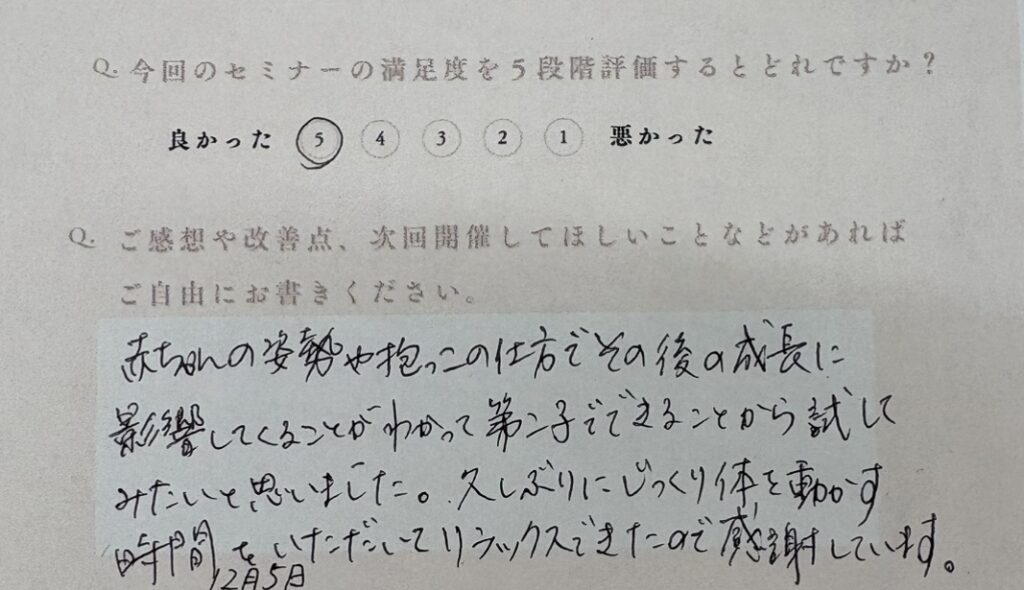 Q. 今回のセミナーの満足度を5段階評価するとどれですか?
良かった 5 4 3 2 1 悪かった
Q. ご感想や改善点、次回開催してほしいことなどがあれば
ご自由にお書きください。
赤ちゃんの姿勢や抱っこの仕方でその後の成長に
影響してくることがわかって第二子でできることから試して
みたいと思いました。久しぶりにじっくり体を動かす
時間をいただいてリラックスできたので感謝しています。
12月5日